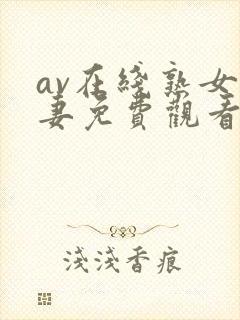 av在綫熟女
妻免費觀看
淺淺香痕